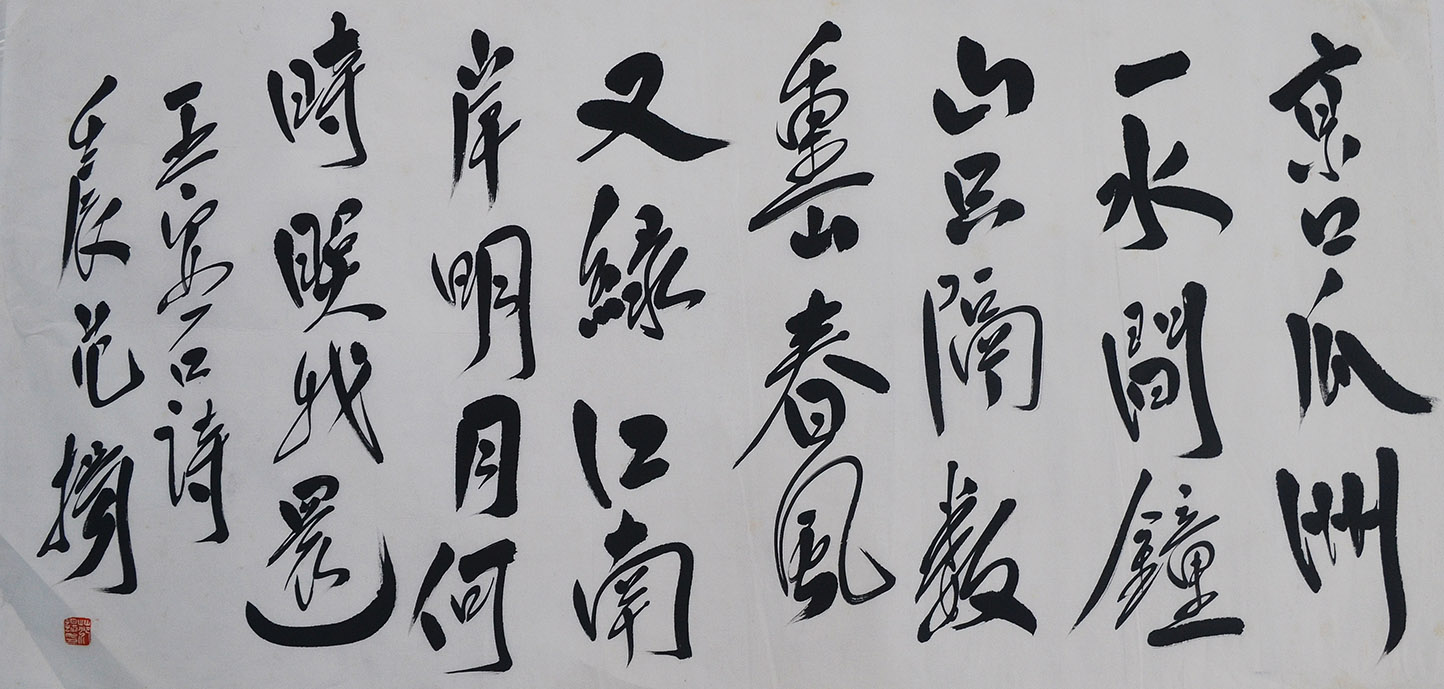 京口瓜洲
一水間鐘
山只隔數
重山春風
又綠江南
岸明月何
時照我還
王安石詩
壬辰范